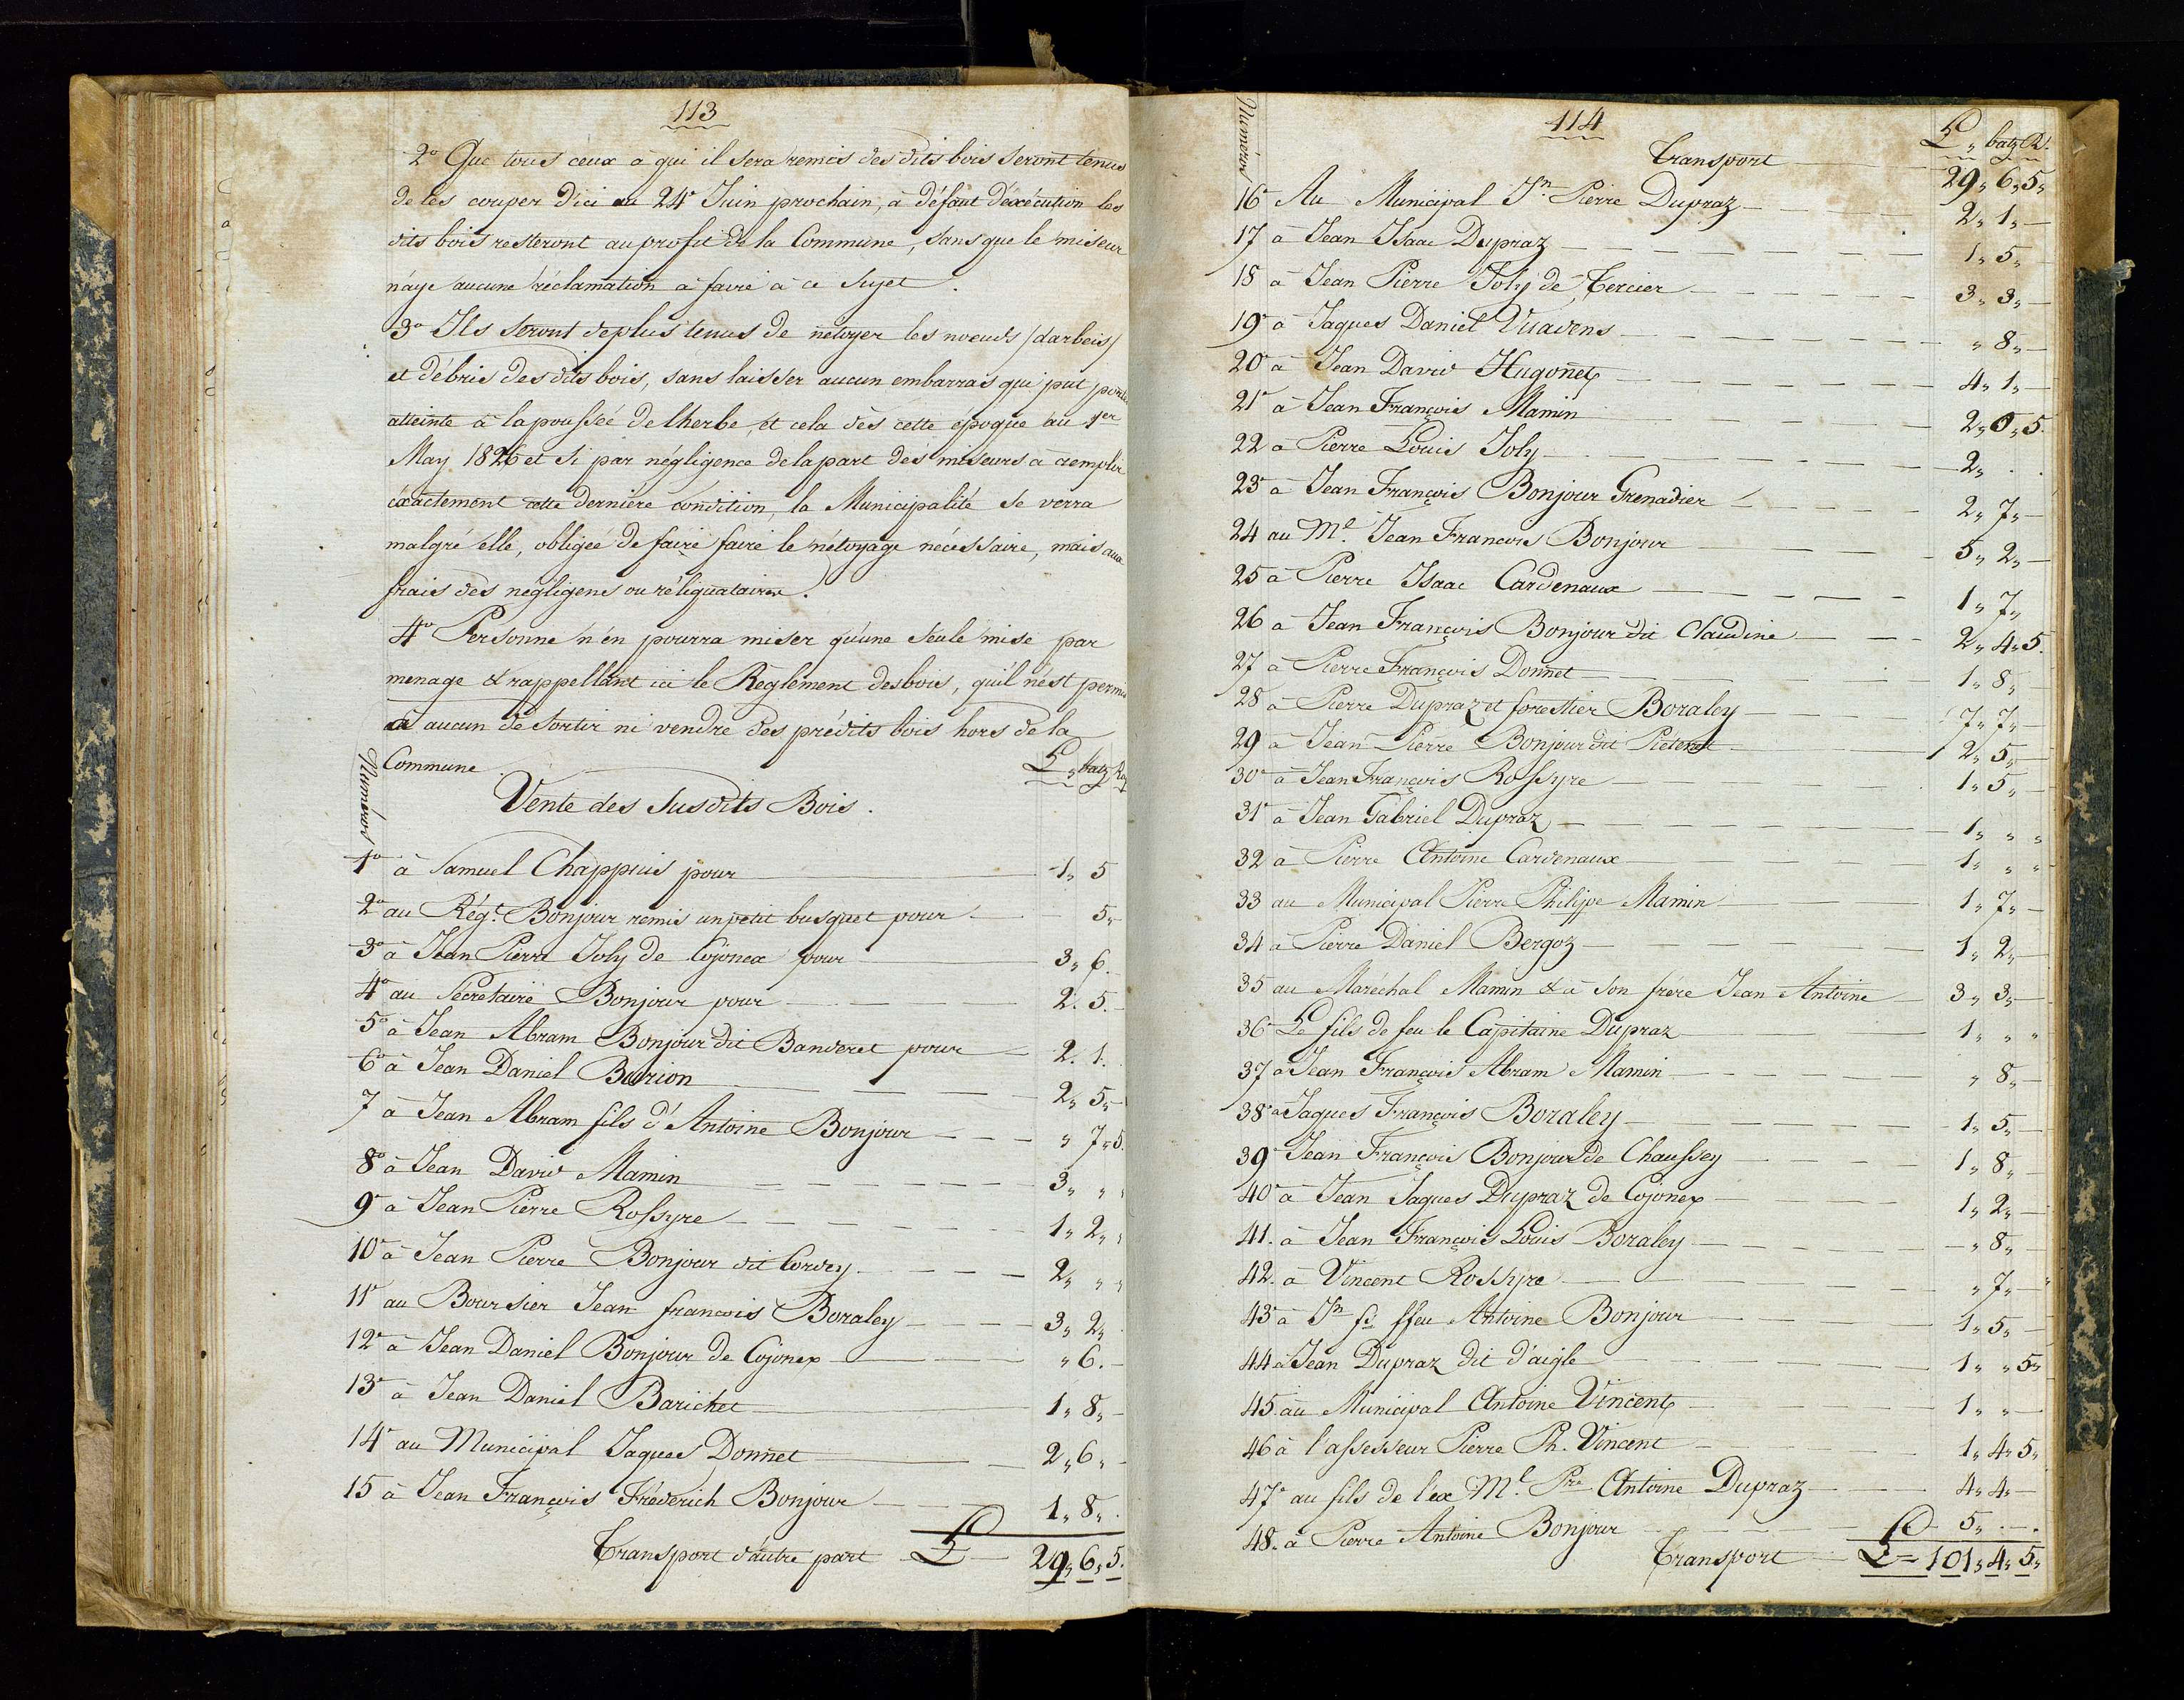 113
2° Que tous ceux à qui il sera remis des dits bois seront tenus
de les couper d'ici au 24e Juin prochain, à défaut d'éxécution les
dits bois resteront au profit de la Commune, sans que le miseur
n'aye aucune réclamation à faire à ce sujet.
3° Ils seront deplus tenus de netoyer les nœuds /darbeis/
et débris des dits bois, sans laisser aucun embarras qui put porter
atteinte à la poussée de lherbe, et cela dès cette époque au 1er
May 1826 et si par négligence de la part des miseurs à remplir
éxactement cette dernière condition, la Municipalité se verra
malgré elle, obligée de faire faire le nétoyage nécessaire, mais aux
frais des négligens ou réliquataires.
4° Personne n'en pourra miser qu'une seule mise par
menage & rappellant ici le Règlement des bois, qu'il n'est permis
à aucun de sortir ni vendre des prédits bois hors de la
Commune.
Numéros
L. batz Rap
Vente des susdits Bois.
1° à Samuel Chappuis pour 1„ 5
2° au Régt. Bonjour remis un petit busquet pour 5„
3° à Jean Pierre Joly de Cojonex pour 3„ 6.
4° au Sécretaire Bonjour pour 2. 5.
5° à Jean Abram Bonjour dit Banderet pour 2. 1.
6° à Jean Daniel Burion 2„ 5„
7 à Jean Abram fils d'Antoine Bonjour „ 7„5.
8° à Jean David Mamin 3„ „ „
9° à Jean Pierre Rossyre 1„ 2„ „
10° à Jean Pierre Bonjour dit Cordey 2„ „ „
11° au Boursier Jean françois Boraley 3„ 2„
12° à Jean Daniel Bonjour de Cojonex „ 6. –
13° à Jean Daniel Barichet 1„ 8„ –
14° au Municipal Jaques Donnet 2„ 6„ –
15 à Jean François Fréderich Bonjour 1„ 8„ .
Transport d'autre part L 29„ 6„ 5.
114
Numéros
L. „ batz R.
Transport 29„ 6„ 5„
16° Au Municipal Jn. Pierre Dupraz 2„ 1„ –
17 à Jean Isaac Dupraz 1„ 5„
18 à Jean Pierre Joly de Tercier 3„ 3„ –
19° à Jaques Daniel Vuavens „ 8„ –
20° à Jean David Hugonet 4„ 1„ –
21° à Jean François Mamin 2„ 0„ 5.
22 à Pierre Louis Joly 2„ . .
23° à Jean François Bonjour Grenadier 2„ 7„ –
24 au Ml. Jean Francois Bonjour 5„ 2„ –
25 à Pierre Isaac Cardenaux 1„ 7„
26 à Jean François Bonjour dit Claudine 2„ 4„ 5.
27 à Pierre François Donnet 1„ 8„ –
28 à Pierre Dupraz et forestier Boraley 7„ 7„ –
29 à Jean Pierre Bonjour dit 2„ 5„ –
30° à Jean François Rossyre 1„ 5„ –
31° à Jean Gabriel Dupraz 1„ „ „
32 à Pierre Antoine Cardenaux 1„ „ „
33 au Municipal Pierre Philippe Mamin 1„ 7„ –
34 à Pierre Daniel Bergoz 1„ 2„ –
35 au Maréchal Mamin & à son frère Jean Antoine 3„ 3„ –
36° Le fils de feu le Capitaine Dupraz 1„ „ „
37 à Jean François Abram Mamin „ 8„ –
38° à Jaques François Boraley 1„ 5„ –
39° Jean François Bonjour de Chaussey 1„ 8„ –
40° à Jean Jaques Dupraz de Cojonex 1„ 2„ –
41. à Jean François Louis Boraley „ 8„ –
42. à Vincent Rossyre „ 7„ –
43° à Jn fs ffeu Antoine Bonjour 1„ 5„ –
44 à Jean Dupraz dit d'aigle 1„ „ 5„
45 au Municipal Antoine Vincent 1„ „ –
46 à l'assesseur Pierre Ph. Vincent 1„ 4„ 5„
47° au fils de l'ex Ml. Pre Antoine Dupraz 4„ 4„ –
48. à Pierre Antoine Bonjour 5„ . – .
Transport L = 101„ 4„ 5„